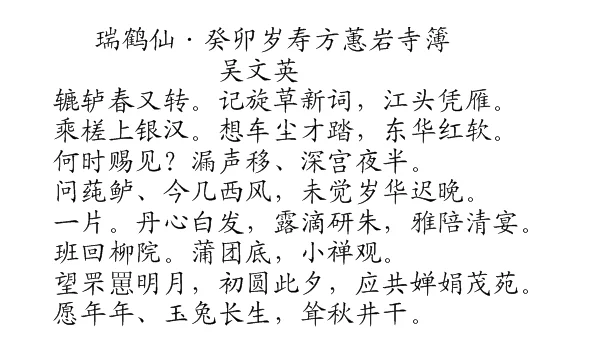 瑞鹤仙·癸卯岁寿方蕙岩寺簿
吴文英
辘轳春又转。记旋草新词，江头凭雁。
乘槎上银汉。想车尘才踏，东华红软。
何时赐见？漏声移、深宫夜半。
问莼鲈、今几西风，未觉岁华迟晚。
一片。丹心白发，露滴研朱，雅陪清宴。
班回柳院。蒲团底，小禅观。
望罘罳明月，初圆此夕，应共婵娟茂苑。
愿年年、玉兔长生，耸秋井干。